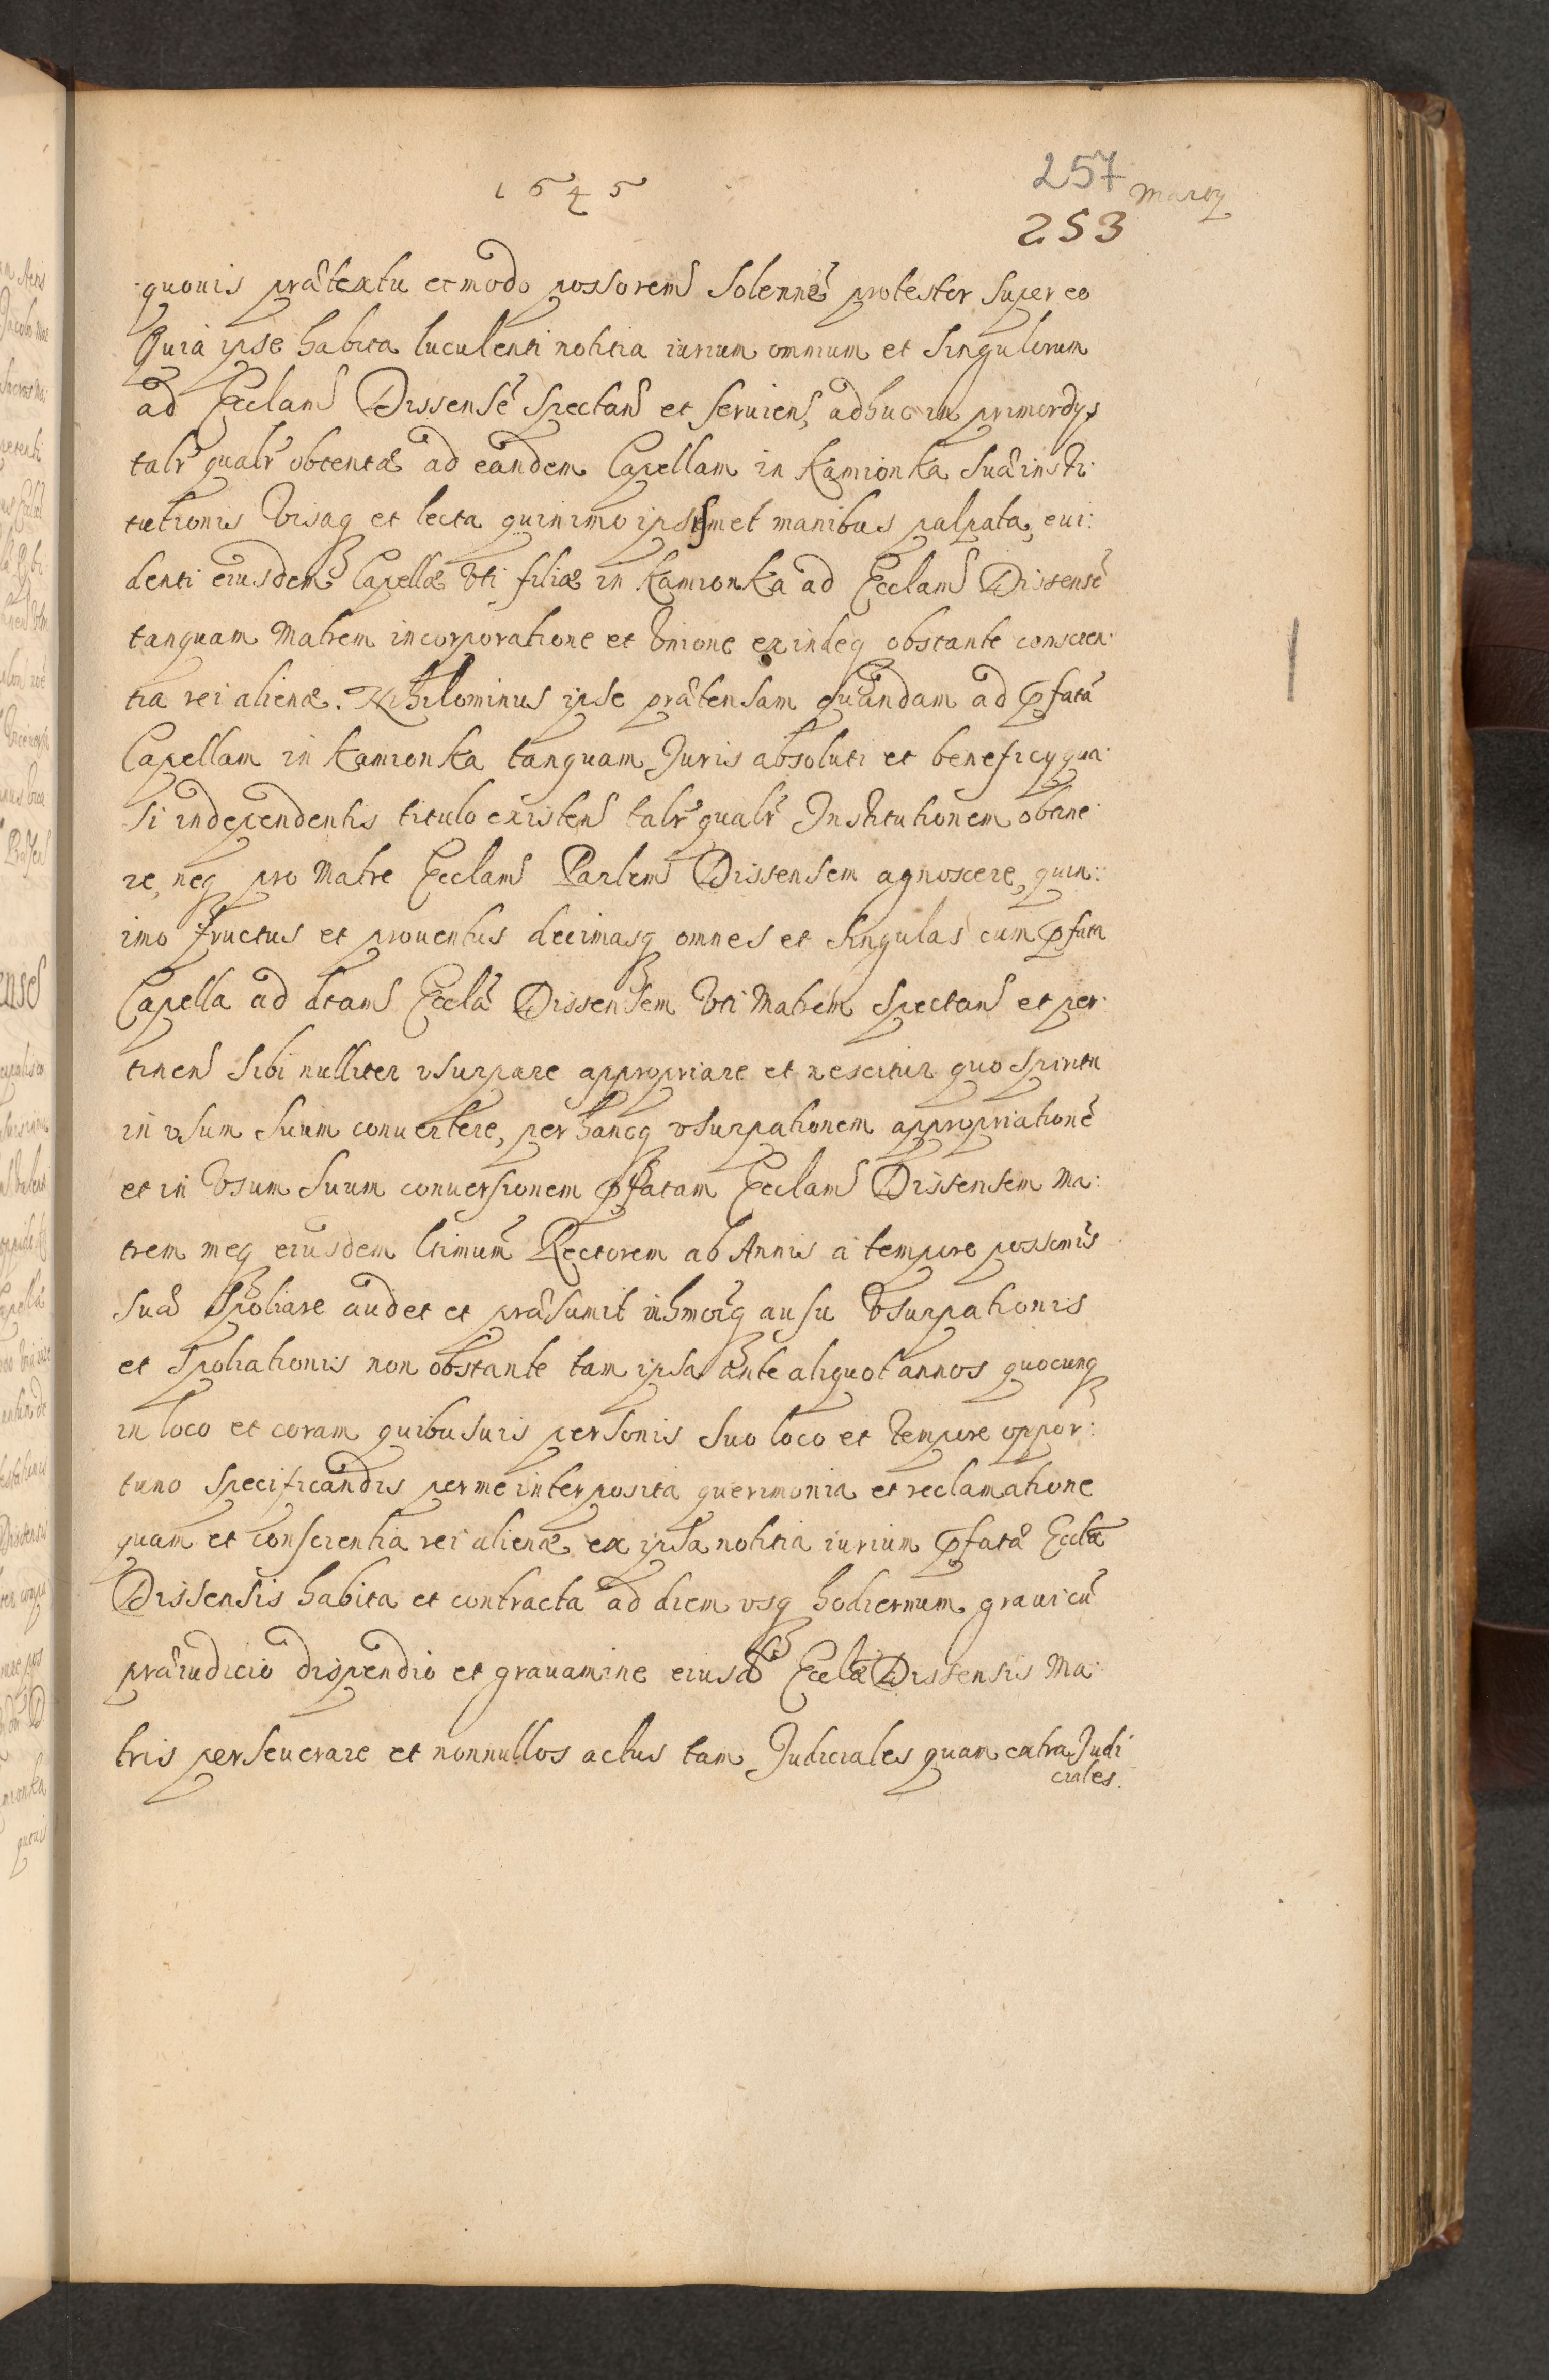 1645
257
Marty
253
quouis prætextu et modo possorem Solennē protestor Super eo
Quia ipse habita luculenti notitia iurium omnium et Singulorum
ad Ecclam Dissensē Spectan et Seruien, adhuc in primordys
talr qualr obtentæ ad eandem Capellam in Kamionka Suæ insti:
tutionis Visaq et lecta quinimo ipsismet manibus palpata, eui:
denti eiusdem Capellæ Vti filiæ in Kamionka ad Ecclam Dissensē
tanquam Matrem incorporatione et Vnione exindeq obstante conscien:
tia rei alienæ. Nihilominus ipse prætensam quandam ad pfatā
Capellam in Kamionka tanquam Juris absoluti et beneficy qua:
si independentis titulo existen talr qualr Institutionem obtine:
re, neq pro Matre Ecclam Parlem Dissensem agnoscere, quin:
imo fructus et prouentus decimasq omnes et Singulas cum pfata
Capella ad dtam Ecclā Dissensem Vti Matrem Spectan et per:
tinen Sibi nulliter vsurpare appropriare et nescitur quo Spiritu
in vsum Suum conuertere, per hancq vsurpationem appropriationē
et in Vsum Suum conuersionem pfatam Ecclam Dissensem Ma:
trem meq eiusdem ltimum Rectorem ab Annis a tempore possonis
Suæ Spoliare audet et præsumit in hmoiq ausu Vsurpationis
et Spoliationis non obstante tam ipsa ante aliquot annos quocunq
in loco et coram quibusuis personis Suo loco et tempore oppor:
tuno Specificandis per me interposita querimonia et reclamatione
quam et conscientia rei alienæ ex ipsa notitia iurium pfatæ Ecclæ
Dissensis habita et contracta ad diem vsq hodiernum graui cū
præiudicio dispendio et grauamine eiusd Ecclæ Dissensis Ma:
tris perseuerare et nonnullos actus tam Judiciales quam extra Judi
ciales.